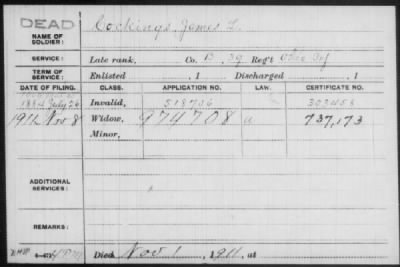 DEAD
NAME OF SOLDIER: Cockings, James L.
SERVICE: Late rank, Co. B, 39 Reg't Ohio Inf
TERM OF SERVICE: Enlisted , 1 Discharged , 1
DATE OF FILING. CLASS. APPLICATION NO. LAW. CERTIFICATE NO.
1884 July 26 Invalid, 518706 303458
1911 Nov 8 Widow, 974708 a 737,173
Minor,
ADDITIONAL SERVICES:
REMARKS:
Died Nov 1, 1911, at